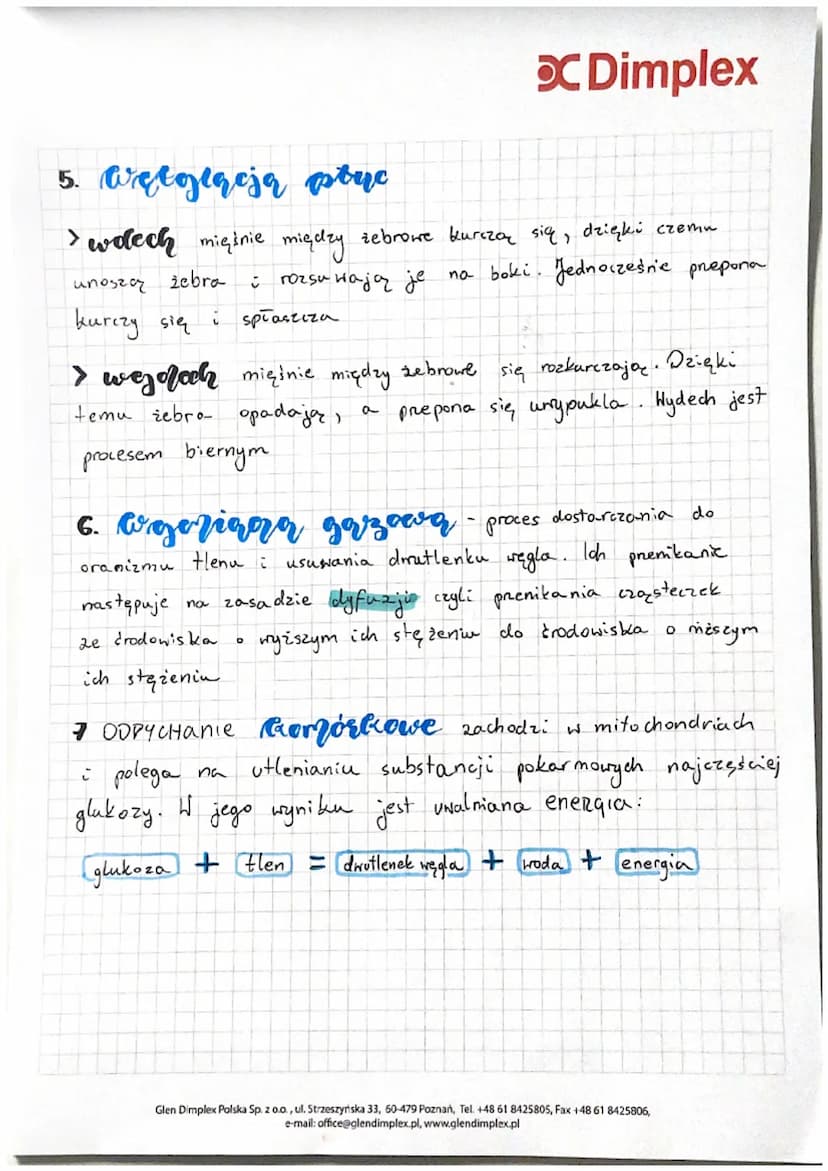 Dimplex
5. wentylacja płuc
> wdech mięśnie między żebrowe kurczą się, dzięki czemu
unoszą żebra i rozsuwają je na boki. Jednocześnie przepona
kurczy się i spłaszcza
> wydech mięśnie między żebrowe się rozkurczają. Dzięki
temu żebra opadają, a przepona się uwypukla. Wydech jest
procesem biernym
6. wymiana gazowa - proces dostarczania do
oranizmu tlenu i usuwania dwutlenku węgla. Ich przenikanie
następuje na zasadzie dyfuzji czyli przenikania cząsteczek
ze środowiska o wyższym ich stężeniu do środowiska o niższym
ich stężeniu
7 ODDYCHANIE komórkowe zachodzi w mitochondriach
i polega na utlenianiu substancji pokarmowych najczęściej
glukozy. W jego wyniku jest uwalniana energia:
glukoza + tlen = dwutlenek węgla + woda + energia
Glen Dimplex Polska Sp. z o.o., ul. Strzeszyńska 33, 60-479 Poznań, Tel. +48 61 8425805, Fax +48 61 8425806,
e-mail: office@glendimplex.pl, www.glendimplex.pl